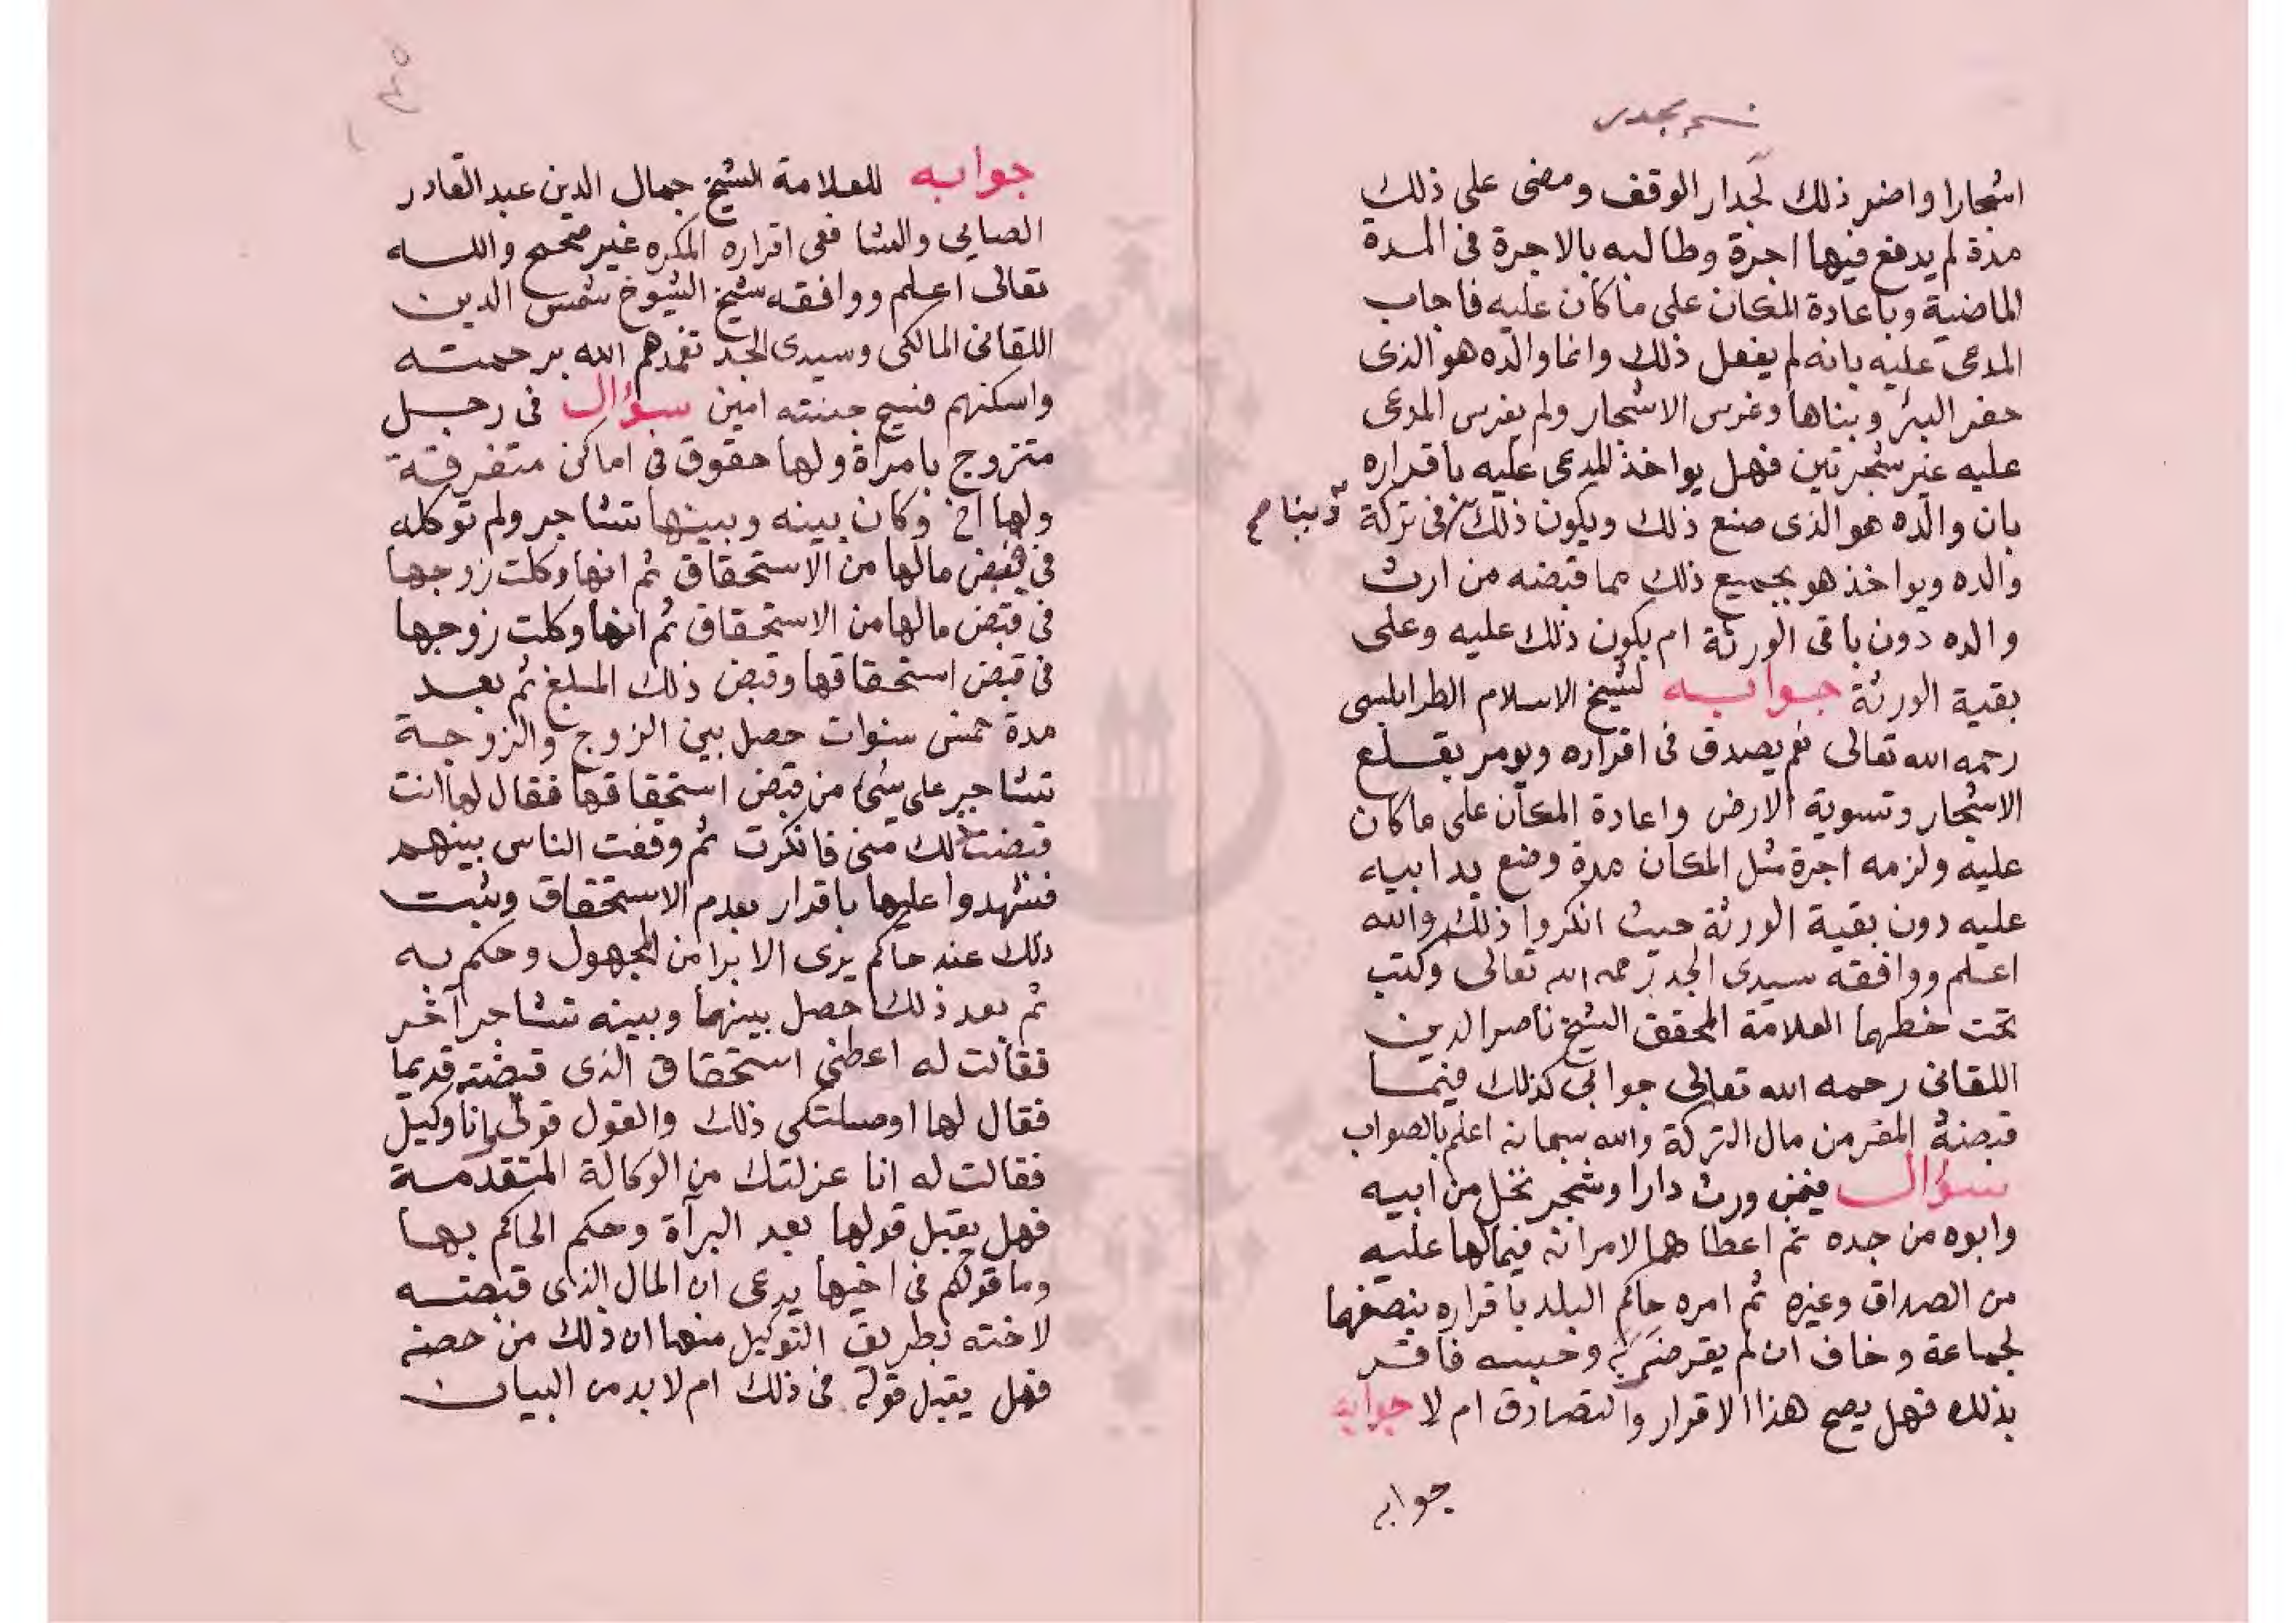 اشجارا واضر ذلك لجدار الوقف ومضى على ذلك
مدة لم يدفع فيها اجرة وطالبه بالاجرة فى المدة
الماضية وباعادة المكان على ماكان عليه فاجاب
المدعى عليه بانه لم يفعل ذلك وانما والده هو الذى
حفر البئر وبناها وغرس الاشجار ولم يغرس المدعى
عليه غير شجرتين فهل يواخذ المدعى عليه باقراره
بان والده هو الذى صنع ذلك ويكون ذلك فى تركة
دينا صح
والده ويواخذ هو بجميع ذلك مما قبضه من ارث
والده دون باقى الورثة ام يكون ذلك عليه وعلى
بقية الورثة جوابه لشيخ الاسلام الطرابلسى
رحمه الله تعالى نعم يصدق فى اقراره ويومر بقلع
الاشجار وتسوية الارض واعادة المكان على ماكان
عليه ولزمه اجرة مثل المكان مدة وضع يد ابيه
عليه دون بقية الورثة حيث انكروا ذلك والله
اعلم ووافقه سيدى الجد رحمه الله تعالى وكتب
تحت خطهما العلامة المحقق الشيخ ناصر الدين
اللقانى رحمه الله تعالى جوابى كذلك فيما
قبضه المقر من مال التركة والله سبحانه اعلم بالصواب
سؤال فيمن ورث دارا وشجر نخل من ابيه
وابوه من جده ثم اعطاهما لامراته فيما لها عليه
من الصداق وغيره ثم امره حاكم البلد باقراره بنصفهما
لجماعة وخاف ان لم يقر ضربه وحبسه فاقر
بذلك فهل يصح هذا الاقرار والتصادق ام لا جوابه
جوابه
جوابه للعلامة الشيخ جمال الدين عبد القادر
الصابي والشافعى اقراره المكره غير صحيح والله
تعالى اعلم ووافقه شيخ الشيوخ شمس الدين
اللقانى المالكى وسيدى الجد تغمدهم الله برحمته
واسكنهم فسيح جنته امين سؤال فى رجل
متزوج بامراة ولها حقوق فى اماكن متفرقة
ولها اخ وكان بينه وبينها تشاجر ولم توكله
فى قبض مالها من الاستحقاق ثم انها وكلت زوجها
فى قبض مالها من الاستحقاق ثم انها وكلت زوجها
فى قبض استحقاقها وقبض ذلك المبلغ ثم بعد
مدة خمس سنوات حصل بين الزوج والزوجة
تشاجر على شئ من قبض استحقاقها فقال لها انت
قبضت ذلك منى فانكرت ثم وقفت الناس بينهم
فشهدوا عليها باقرار بعدم الاستحقاق وثبت
ذلك عند حاكم يرى الابرا من المجهول وحكم به
ثم بعد ذلك حصل بينهما وبينه تشاجر آخر
فقالت له اعطنى استحقاق الذى قبضته قديما
فقال لها اوصلتكى ذلك والقول قولى وانا وكيل
فقالت له انا عزلتك من الوكالة المتقدمة
فهل يقبل قولها بعد البرآة وحكم الحاكم بها
وما قولكم فى اخيها يدعى ان المال الذى قبضته
لاخته بطريق التوكيل منها ان ذلك من حصته
فهل يقبل قوله فى ذلك ام لا بد من البيان